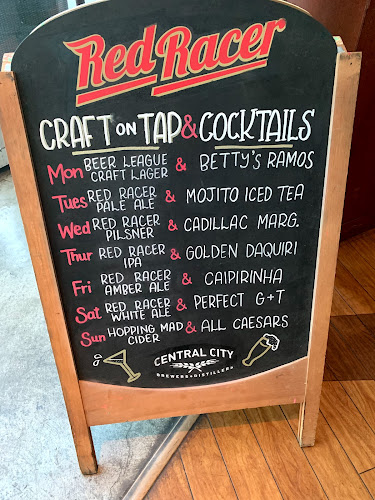 Red Racer
CRAFT ON TAP & COCKTAILS
Mon BEER LEAGUE CRAFT LAGER & BETTY'S RAMOS
Tues RED RACER PALE ALE & MOJITO ICED TEA
Wed RED RACER PILSNER & CADILLAC MARG.
Thur RED RACER IPA & GOLDEN DAQUIRI
Fri RED RACER AMBER ALE & CAIPIRINHA
Sat RED RACER WHITE ALE & PERFECT G+T
Sun HOPPING MAD CIDER & ALL CAESARS
CENTRAL CITY
BREWERS+DISTILLERS